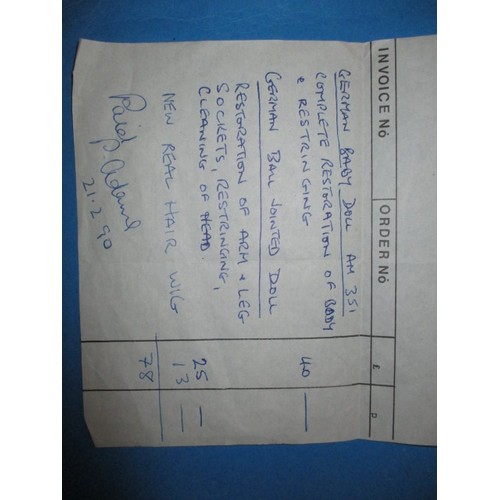 INVOICE Nó ORDER Nó £ P
GERMAN BABY DOLL AM 351
COMPLETE RESTORATION OF BODY
& RESTRINGING 40 —
GERMAN BALL JOINTED DOLL
RESTORATION OF ARM + LEG
SOCKETS, RESTRINGING,
CLEANING OF HEAD. 25 —
NEW REAL HAIR WIG 13 —
78
Paid
21.2.90